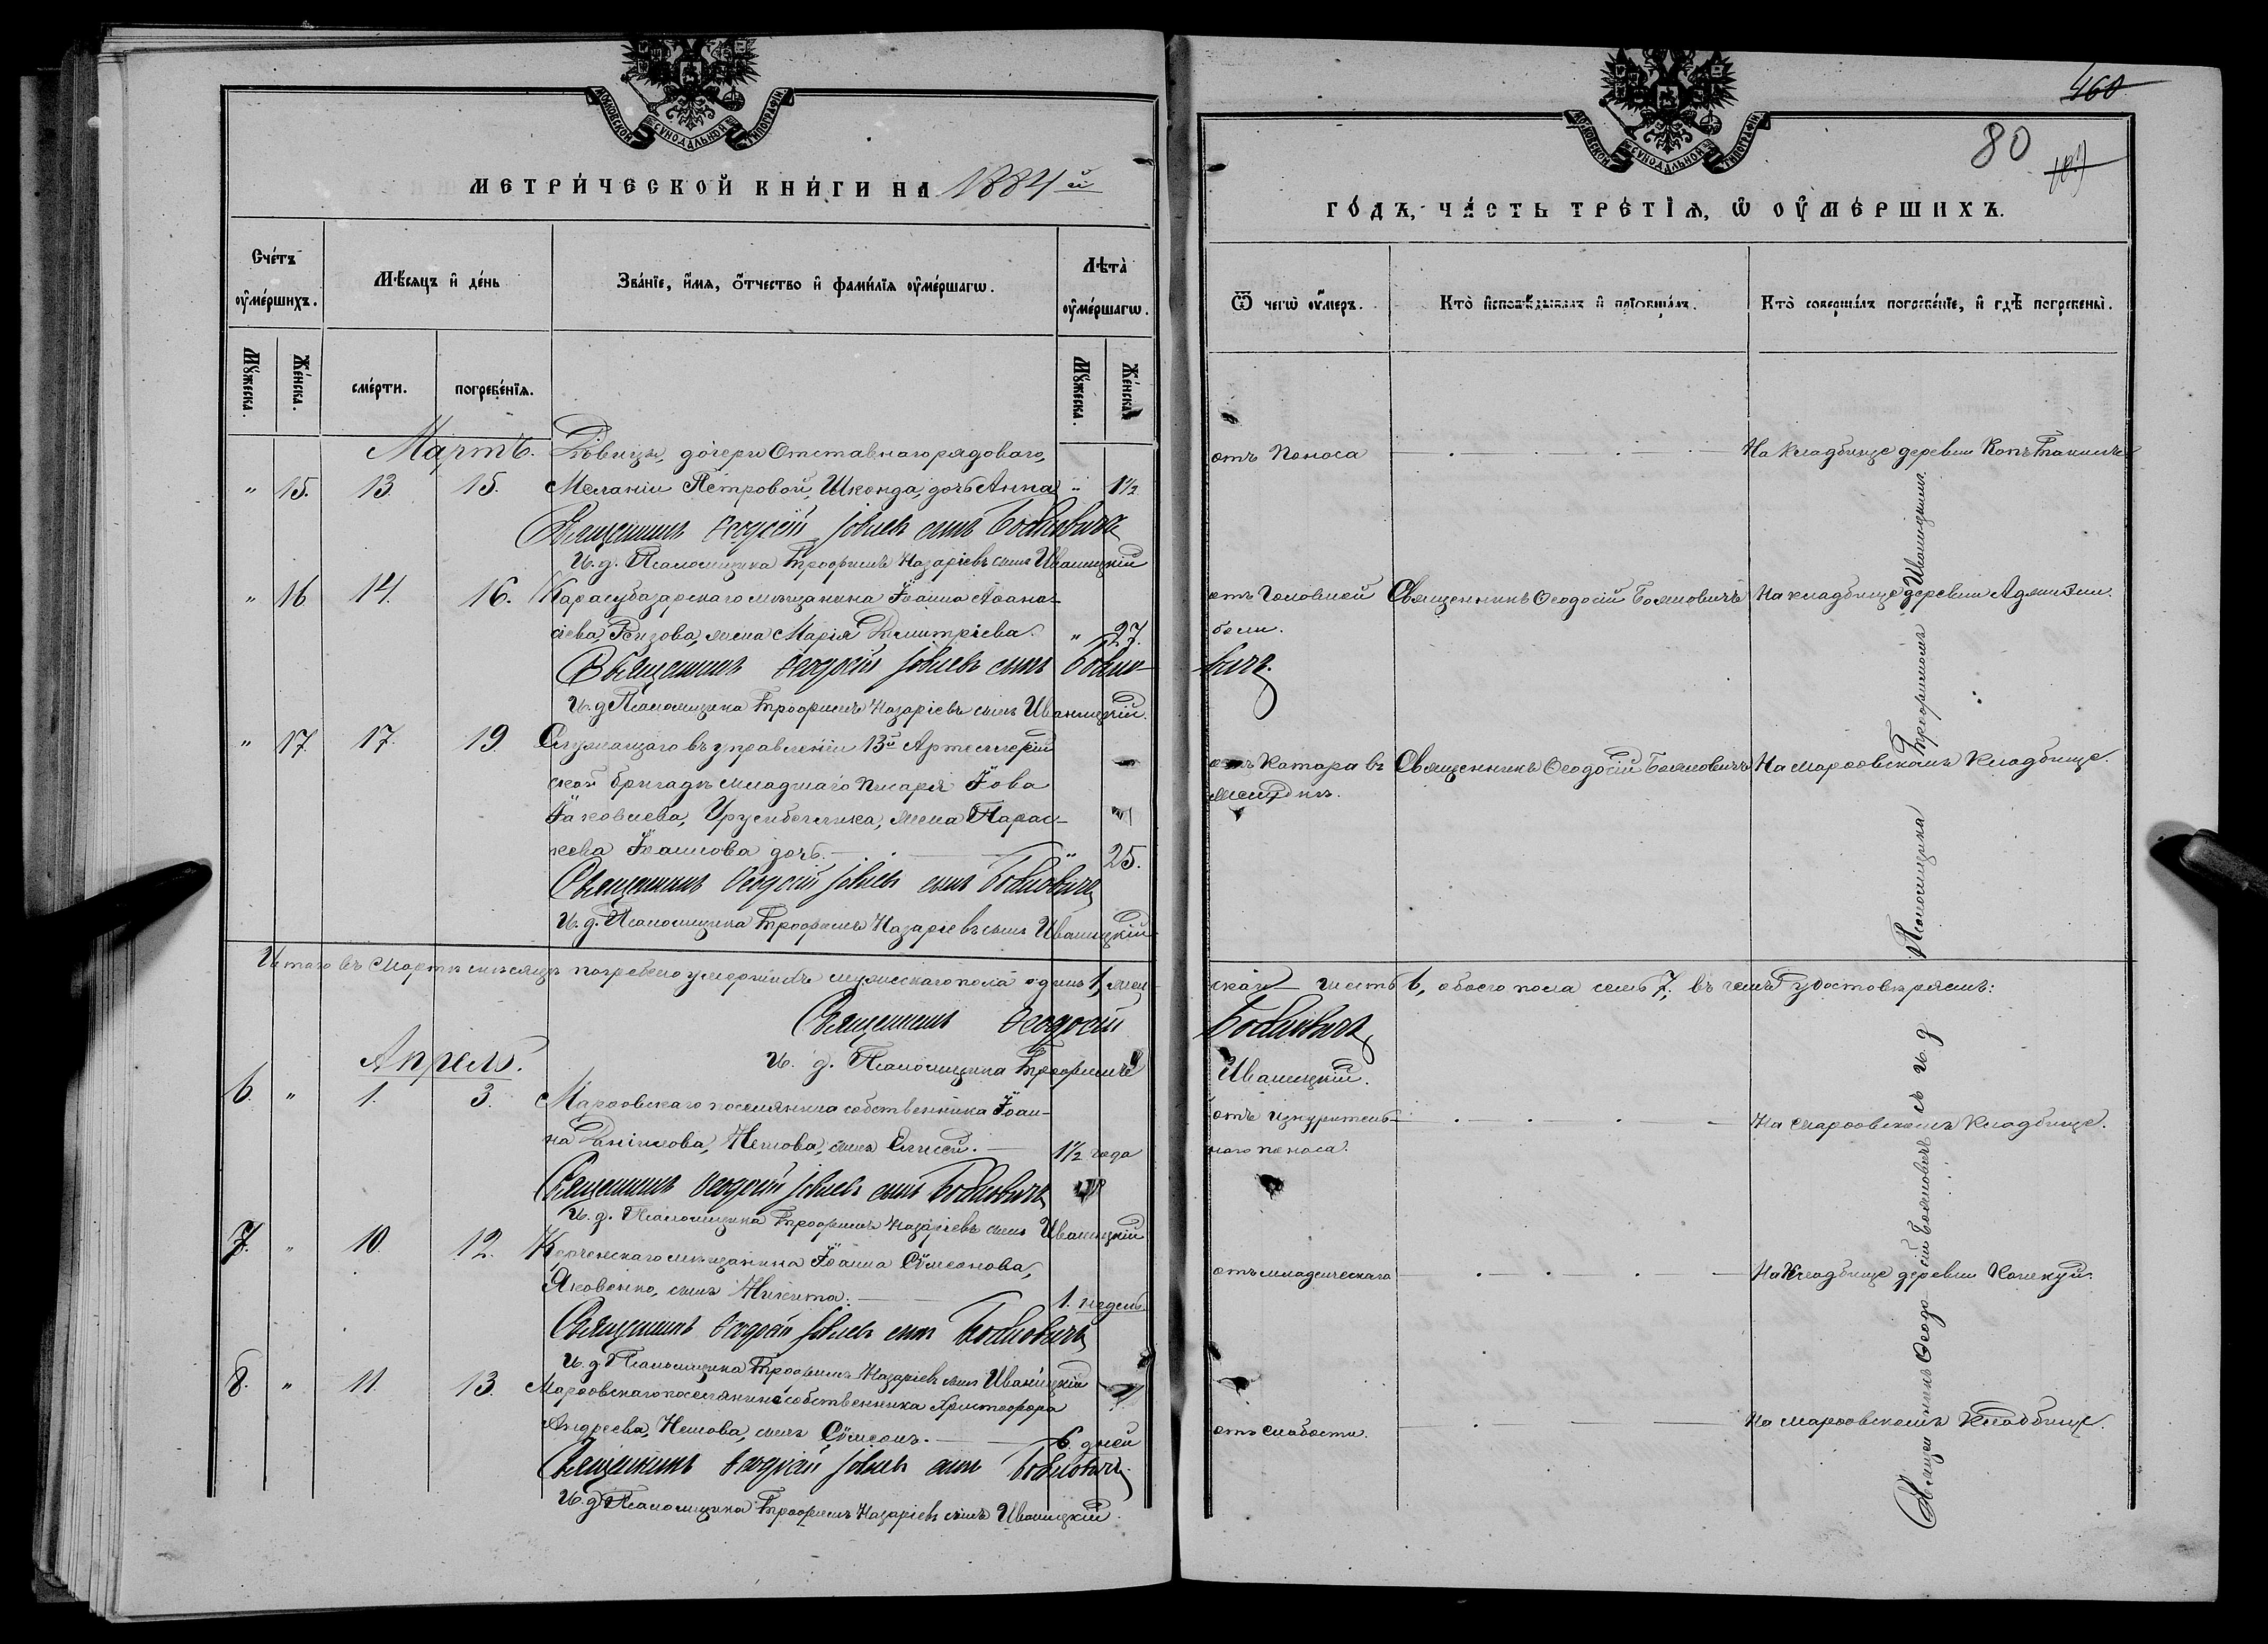 МОСКОВСКОЙ СѴНОДАЛЬНОЙ ТИПОГРАФІИ
МЕТРИ́ЧЕСКОЙ КНИ́ГИ НА 1884й
Сче́тъ ᲂу҆ме́ршихъ.
Мѣ́сяцъ и҆ де́нь
Зва́нїе, и҆́мя, ѻ҆́тчество и҆ фами́лїя ᲂу҆ме́ршагѡ.
Лѣта̀ ᲂу҆ме́ршагѡ.
Мꙋ́жеска.
Же́нска.
сме́рти.
погребе́нїя.
Мꙋ́жеска.
Же́нска.
Мартъ. Дѣвицы, дочери Отставнаго рядоваго,
" 15. 13. 15. Меланіи Петровой, Шконда, дочь Анна " 1½
Священникъ Ѳеодосій Іовлевъ сынъ Бояновичъ
И. д. Псаломщика Трофимъ Назаріевъ сынъ Иваницкій
" 16 14. 16. Карасубазарскаго мѣщанина Іоанна Аѳана-
сіева, Ризова, жена Марія Димитріева. " 27.
Священникъ Ѳеодосій Іовлевъ сынъ Бояно-
И. д. Псаломщика Трофимъ Назаріевъ сынъ Иваницкій.
" 17. 17. 19. Служащаго въ управленіи 13й Артиллерій
ской бригадѣ младшаго писаря Іова
Іаковлева, жена Парас-
кева Іоаннова дочь. " 25.
Священникъ Ѳеодосій Іовлевъ сынъ Бояновичъ
И. д. Псаломщика Трофимъ Назаріевъ сынъ Иваницкій
Итого въ Мартѣ мѣсяцѣ погребено умершихъ мужескаго пола одинъ 1, жен-
Священникъ Ѳеодосій
Апрель. И. д. Псаломщика Трофимъ
6. " 1. 3. Марѳовскаго поселянина собственника Іоан-
на Даніилова, Нешова, сынъ Елисей. 1½ года
Священникъ Ѳеодосій Іовлевъ сынъ Бояновичъ
И. д. Псаломщика Трофимъ Назаріевъ сынъ Иваницкій
7. " 10. 12. Керченскаго мѣщанина Іоанна Сѵмеонова,
Яковенко, сынъ Никита. 1. недель
Священникъ Ѳеодосій Іовлевъ сынъ Бояновичъ
И. д. Псаломщика Трофимъ Назаріевъ сынъ Иваницкій
8. " 11. 13. Марѳовскаго поселянина собственника Христофора
Андреева, Нешова, сынъ Сѵмеонъ. 6. дней
Священникъ Ѳеодосій Іовлевъ сынъ Бояновичъ
И. д. Псаломщика Трофимъ Назаріевъ сынъ Иваницкій.
460
80
МОСКОВСКОЙ СѴНОДАЛЬНОЙ ТИПОГРАФІИ
ГО́ДЪ, ЧА́СТЬ ТРЕ́ТІЯ, Ѡ҆ ОУ҆МЕ́РШИХЪ.
Ѿ чегѡ̀ ᲂу҆́меръ.
Кто̀ и҆сповѣ́дывалъ и҆ прїобща́лъ.
Кто̀ соверша́лъ погребе́нїе, и҆ гдѣ̀ погребены̀.
отъ Поноса На кладбище деревни
отъ Головной Священникъ Ѳеодосій Бояновичъ На кладбище деревни
боли.
вичъ.
отъ Катара въ Священникъ Ѳеодосій Бояновичъ На Марѳовскомъ Кладбище.
желудкѣ.
скаго шесть 6, обоего пола семь 7, въ чемъ удостовѣряемъ:
Бояновичъ
Иваницкій.
отъ изнуритель- На Марѳовскомъ Кладбище.
наго поноса.
отъ младенческаго На Кладбище деревни
отъ слабости. На Марѳовскомъ Кладбище.
Священникъ Ѳеодосій Бояновичъ съ и. д. Псаломщика Трофимомъ Иваницкимъ